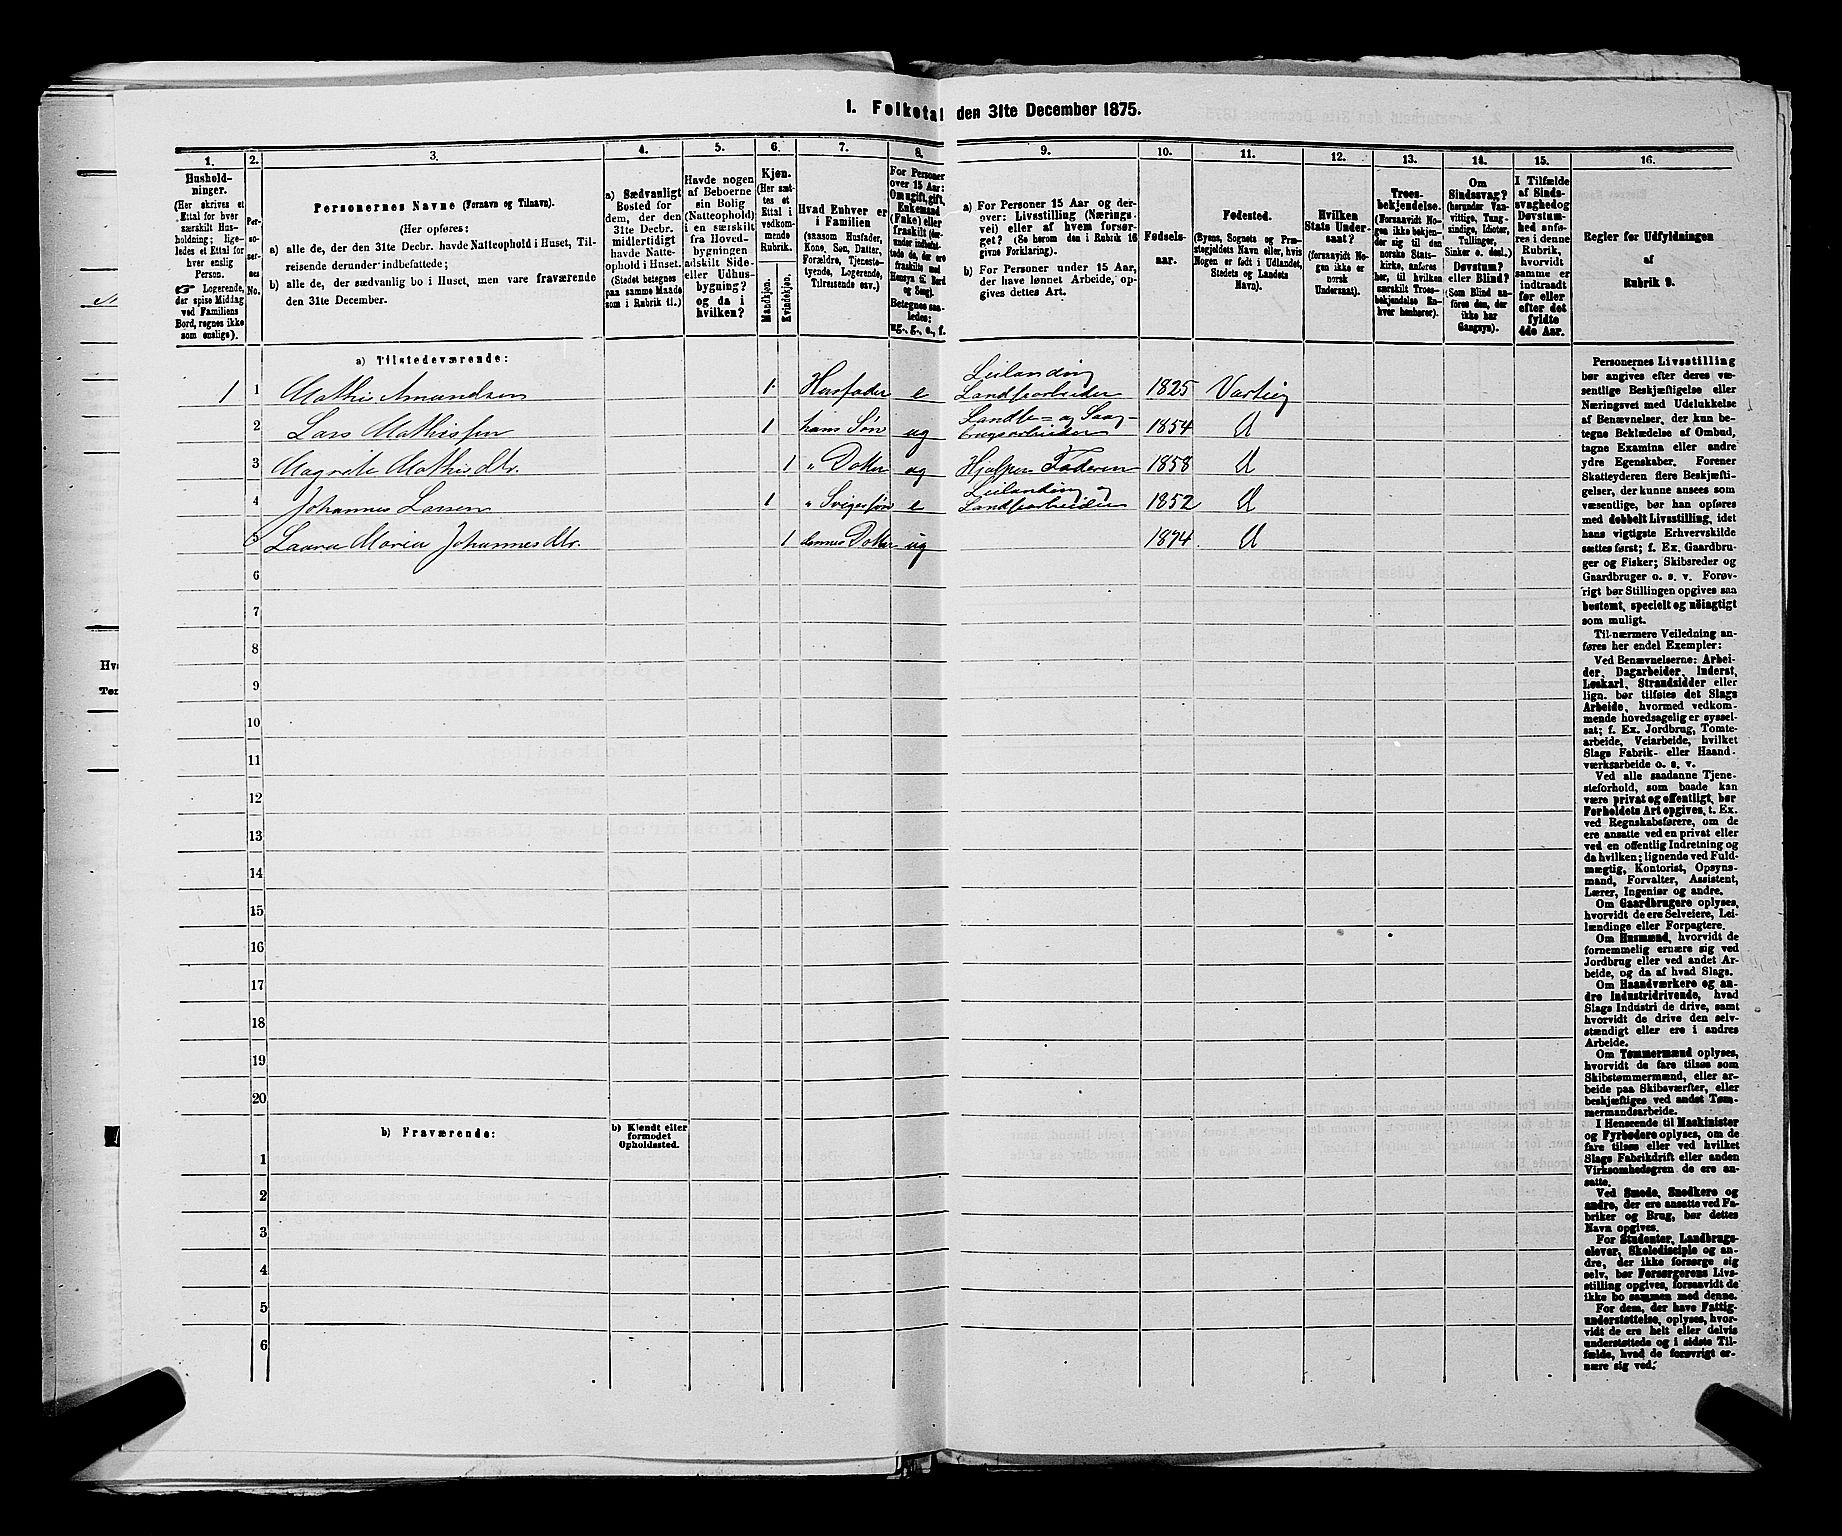 I. Folketal den 31te December 1875.
1. 2. 3. 4. 5. 6. 7. 8. 9. 10. 11. 12. 13. 14. 15. 16.
Hushold-
ninger.
(Her skrives et
Ettal for hver
særskilt Hus-
holdning; lige-
ledes et Ettal for
hver enslig
Person.
☞ Logerende,
der spise Middag
ved Familiens
Bord, regnes ikke
som enslige).
Per-
so-
ner-
nes
No.
Personernes Navne (Fornavn og Tilnavn).
(Her opføres:
a) alle de, der den 31te Decbr. havde Natteophold i Huset, Til-
reisende derunder indbefattede;
b) alle de, der sædvanlig bo i Huset, men vare fraværende
den 31te December.
a) Sædvanligt
Bosted for
dem, der den
31te Decbr.
midlertidigt
havde Natte-
ophold i Huset.
(Stedet betegnes
paa samme Maade
som i Rubrik 11.)
Havde nogen
af Beboerne
sin Bolig
(Natteophold)
i en særskilt
fra Hoved-
bygningen
adskilt Side-
eller Udhus-
bygning?
og da i
hvilken?
Kjøn.
(Her sæt-
tes et
Ettal i
vedkom-
mende
Rubrik.
Mandkjøn.
Kvindekjøn.
Hvad Enhver er
i Familien
(saasom Husfader,
Kone, Søn, Datter,
Forældre, Tjeneste-
tyende, Logerende,
Tilreisende osv.)
For Personer
over 15 Aar:
Om ugift, gift,
Enkemand
(Enke) eller
fraskilt (her-
under indbefat-
tede de, der ere
fraskilte med
Hensyn til Bord
og Seng).
Betegnes saa-
ledes:
ug., g., e., f.
a) For Personer 15 Aar og der-
over: Livsstilling (Nærings-
vei) eller af hvem forsør-
get? (Se herom den i Rubrik 16
givne Forklaring).
b) For Personer under 15 Aar,
der have lønnet Arbeide, op-
gives dettes Art.
Fødsels-
aar.
Fødested.
(Byens, Sognets og Præ-
stegjeldets Navn eller, hvis
Nogen er født i Udlandet,
Stedets og Landets
Navn).
Hvilken
Stats Under-
saat?
(forsaavidt No-
gen ikke er
norsk
Undersaat).
Troes-
bekjendelse.
(Forsaavidt No-
gen ikke bekjen-
der sig til den
norske Stats-
kirke, anføres
her, til hvilken
særskilt Troes-
bekjendelse En-
hver henhører).
Om
Sindssvag?
(herunder Van-
vittige, Tung-
sindige, Idioter,
Tullinger,
Sinker o. desl.)
Døvstum?
eller Blind?
(Som Blind an-
føres den, der
ikke har
Gangsyn).
I Tilfælde
af Sinds-
svaghed og
Døvstum-
hed anfø-
res i denne
Rubrik,
hvorvidt
samme er
indtraadt
før eller
efter det
fyldte
4de Aar.
Regler for Udfyldningen
af
Rubrik 9.
a) Tilstedeværende:
1 1 Mathis Amundsen 1 Husfader e Leilænding Landsarbeider 1825 Varteig
2 Lars Mathissen 1 hans Søn ug Landbr- og Saag-brugsarbeider 1854 do
3 Magrete Mathisdtr. 1 " Datter ug Hjælper Faderen 1858 do
4 Johannes Larsen 1 " Svigersøn e Leilænding og Landsarbeider 1852 do
5 Laura Maria Johannesdtr. 1 dennes Datter ug 1874 do
6
7
8
9
10
11
12
13
14
15
16
17
18
19
20
b) Fraværende:
b) Kjendt eller
formodet
Opholdssted.
1
2
3
4
5
6
Personernes Livsstilling
bør angives efter deres væ-
sentlige Beskjæftigelse eller
Næringsvei med Udelukkelse
af Benævnelser, der kun be-
tegne Beklædelse af Ombud,
tagne Examina eller andre
ydre Egenskaber. Forener
Skatteyderen flere Beskjæfti-
gelser, der kunne ansees som
væsentlige, bør han opføres
med dobbelt Livsstilling, idet
hans vigtigste Erhvervskilde
sættes først; f. Ex. Gaardbru-
ger og Fisker; Skibsreder og
Gaardbruger o. s. v. Forøv-
rigt bør Stillingen opgives saa
bestemt, specielt og nøiagtigt
som muligt.
Til nærmere Veiledning an-
føres her endel Exempler:
Ved Benævnelserne: Arbei-
der, Dagarbeider, Inderst,
Løskarl, Strandsidder eller
lign. bør tilføies det Slags
Arbeide, hvormed vedkom-
mende hovedsagelig er syssel-
sat; f. Ex. Jordbrug, Tomte-
arbeide, Veiarbeide, hvilket
Slags Fabrik- eller Haand-
værksarbeide o. s. v.
Ved alle saadanne Tjene-
steforhold, som baade kan
være privat og offentligt, bør
Forholdets Art opgives, t. Ex.
ved Regnskabsførere, om de
ere ansatte ved en privat eller
ved en offentlig Indretning og
da hvilken; lignende ved Fuld-
mægtig, Kontorist, Opsyns-
mand, Forvalter, Assistent,
Lærer, Ingeniør og andre.
Om Gaardbrugere oplyses,
hvorvidt de ere Selveiere, Lei-
lændinge eller Forpagtere.
Om Husmænd, hvorvidt de
fornemmelig ernære sig ved
Jordbrug eller ved andet Ar-
beide, og da af hvad Slags.
Om Haandværkere og an-
dre Industridrivende, hvad
Slags Industri de drive, samt
hvorvidt de drive den selv-
stændigt eller ere i andres
Arbeide.
Om Tømmermænd oplyses,
hvorvidt de fare tilsøs som
Skibstømmermænd, eller ar-
beide paa Skibsværfter, eller
beskjæftiges ved andet Tøm-
mermandsarbeide.
I Henseende til Maskinister
og Fyrbødere oplyses, om de
fare tilsøs eller ved hvilket
Slags Fabrikdrift eller anden
Virksomhedsgren de ere an-
satte.
Ved Smede, Snedkere og
andre, der ere ansatte ved Fa-
briker og Brug, bør dettes
Navn opgives.
For Studenter, Landbrugs-
elever, Skoledisciple og an-
dre, der ikke forsørge sig
selv, bør Forsørgerens Livs-
stilling opgives, forsaavidt de
ikke bo sammen med denne.
For dem, der have Fattig-
understøttelse, oplyses, hvor-
vidt de ere helt eller delvis
understøttede og i sidste Til-
fælde, hvad de forøvrigt er-
nære sig ved.